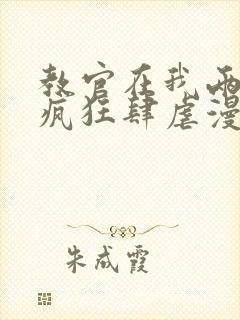 教官在我两
疯狂肆虐漫
朱成霞